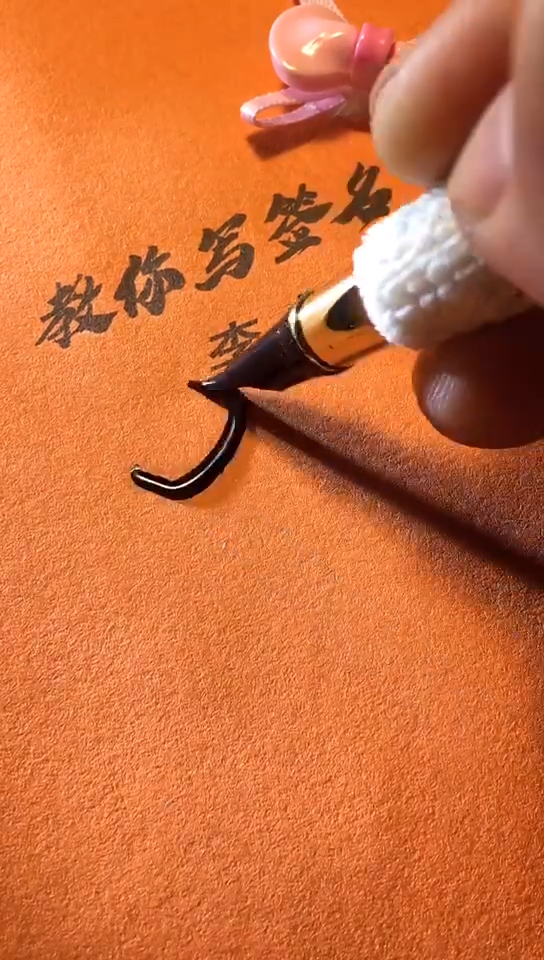 教你写签名
李